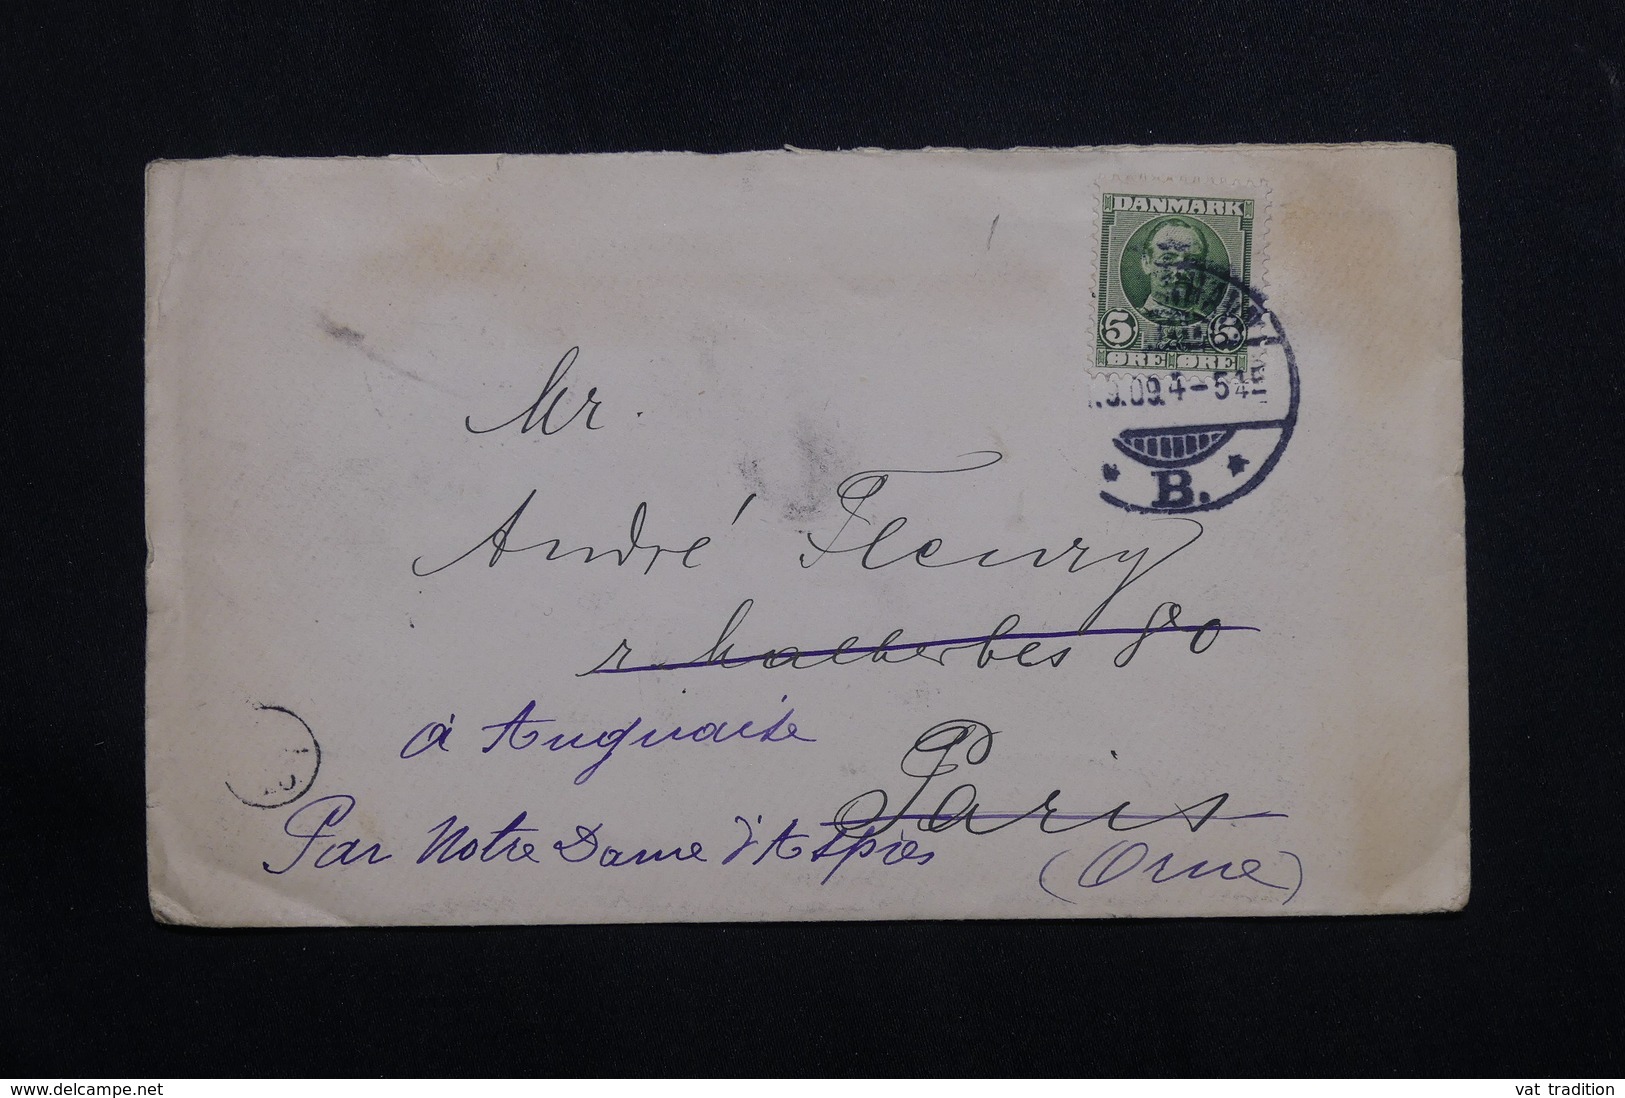 DANMARK
5 5
ØRE ØRE
.9.09. 4-5 1 E
* B. *
Mr.
André Fleury
r. Malherbes 80
à Auguaise
Paris
Par Notre Dame d'Aspres (Orne)
www.delcampe.net
vat tradition